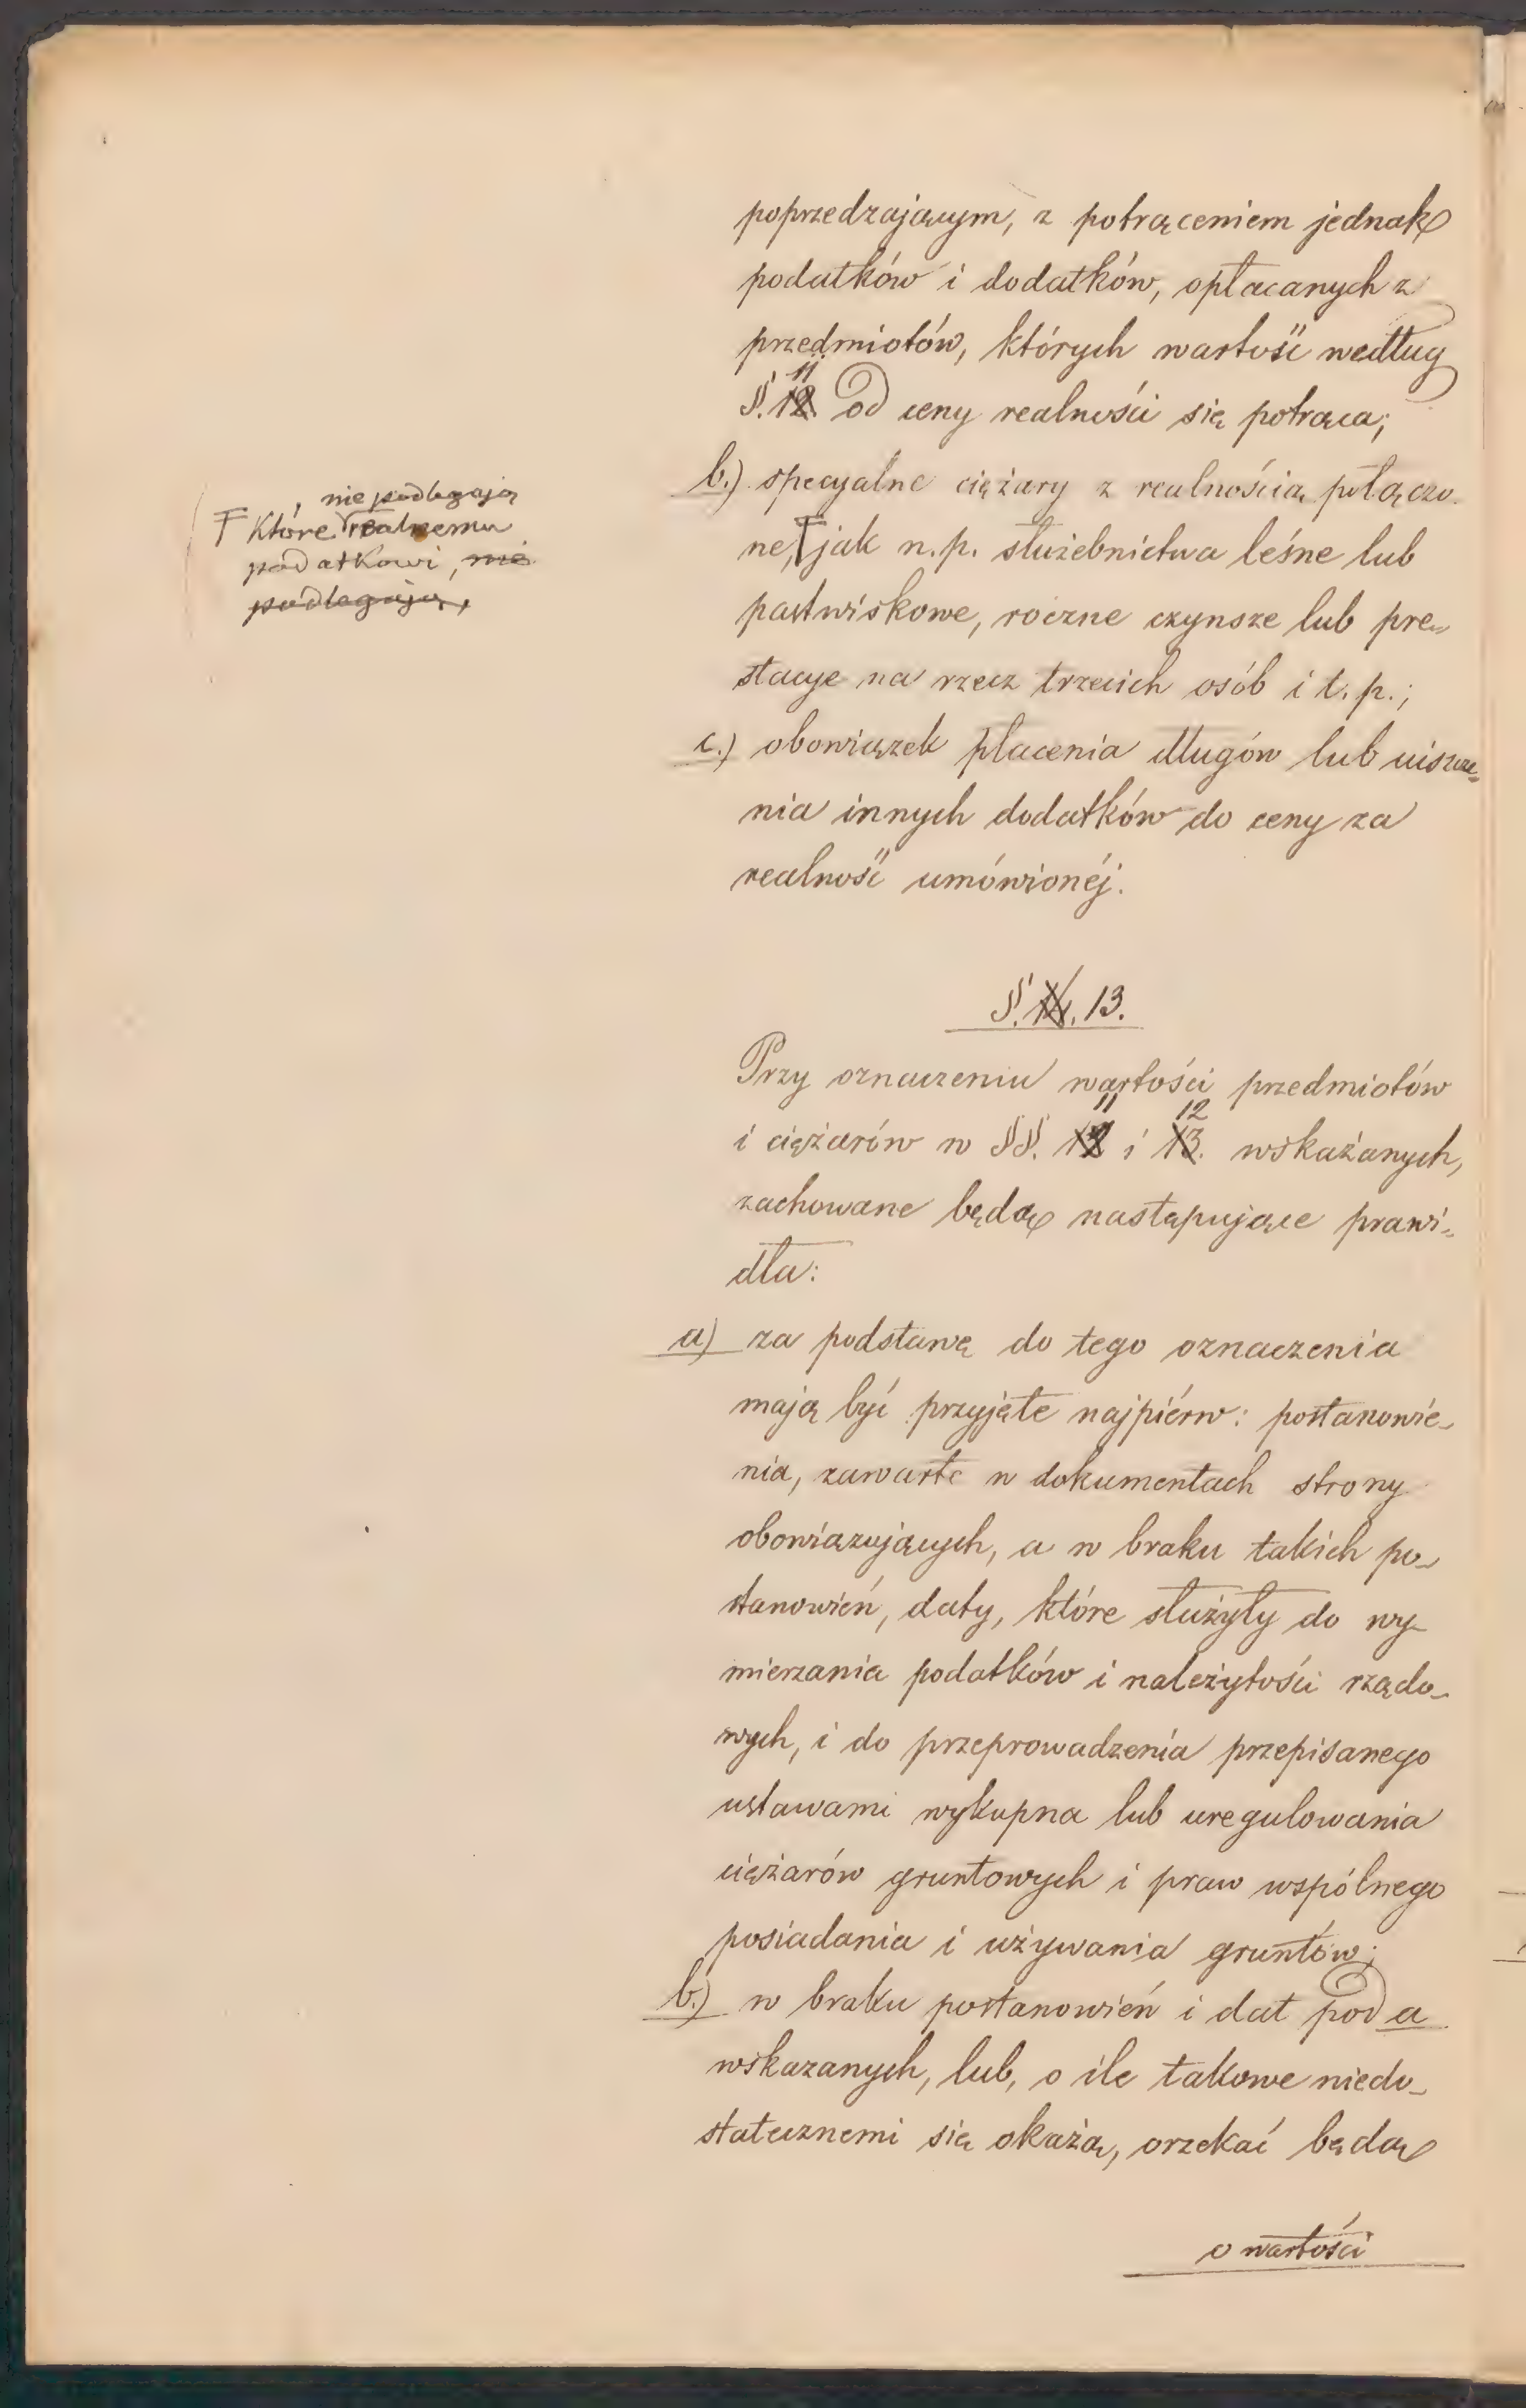 poprzedzającym, z potrąceniem jednak
podatków i dodatków, opłacanych z
przedmiotów, których wartość według
11
§. 12. od ceny realności się potrąca;
b.) specyalne ciężary z realnością połączo-
ne, Ŧ jak n.p. służebnictwa leśne lub
pastwiskowe, roczne czynsze lub pre-
stacye na rzecz trzecich osób i t. p.;
c.) obowiązek płacenia długów lub uiszcze-
nia innych dodatków do ceny za
realność umówionéj.
, nie podlegają
Ŧ Które realnemu
podatkowi, nie
podlegają,
§. 14. 13.
Przy oznaczeniu wartości przedmiotów
11 12
i ciężarów w §§. 12 i 13. wskazanych,
zachowane będą następujące prawi-
dła:
a) za podstawę do tego oznaczenia
mają być przyjęte najpiérw: postanowie-
nia, zawarte w dokumentach strony
obowiązujących, a w braku takich po-
stanowień, daty, które służyły do wy-
mierzania podatków i należytości rządo-
wych, i do przeprowadzenia przepisanego
ustawami wykupna lub uregulowania
ciężarów gruntowych i praw wspólnego
posiadania i używania gruntów;
b.) w braku postanowień i dat pod a
wskazanych, lub, o ile takowe niedo-
statecznemi się okażą, orzekać będą
o wartości